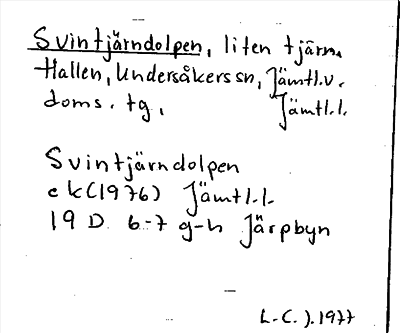 Svintjärndolpen, liten tjärn.
Hallen, Undersåkers sn, Jämtl.v.
doms. tg, Jämtl.l.
Svintjärndolpen
ek(1976) Jämtl.l.
19 D 6-7 g-h Järpbyn
L.C.J.1977